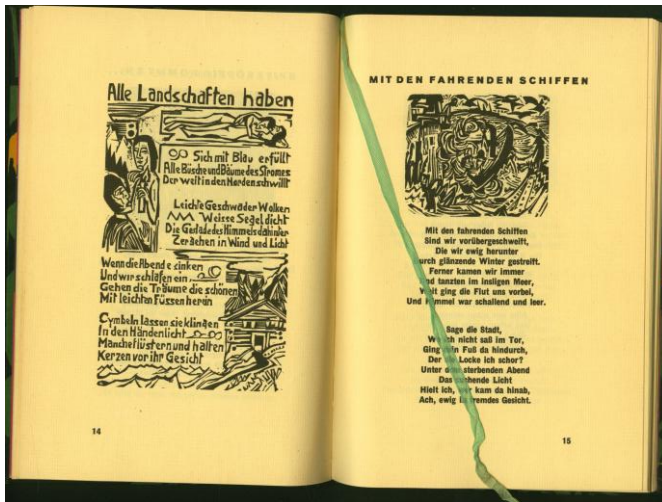 Alle Landschaften haben
Sich mit Blau erfüllt
Alle Büsche und Bäume des Stromes
Der weit in den Norden schwillt
Leichte Geschwader Wolken
Weisse Segel dicht
Die Gestade des Himmels dahinter
Zergehen in Wind und Licht
Wenn die Abende sinken
Und wir schlafen ein,
Gehen die Träume die schönen
Mit leichten Füssen herein
Cymbeln lassen sie klingen
In den Händen licht
Manche flüstern und halten
Kerzen vor ihr Gesicht
14
MIT DEN FAHRENDEN SCHIFFEN
Mit den fahrenden Schiffen
Sind wir vorübergeschweift,
Die wir ewig herunter
durch glänzende Winter gestreift.
Ferner kamen wir immer
Und tanzten im insligen Meer,
Weit ging die Flut uns vorbei,
Und Himmel war schallend und leer.
Sage die Stadt,
Wo ich nicht saß im Tor,
Ging dein Fuß da hindurch,
Der die Locke ich schor?
Unter dem sterbenden Abend
Das suchende Licht
Hielt ich, wer kam da hinab,
Ach, ewig in fremdes Gesicht.
15